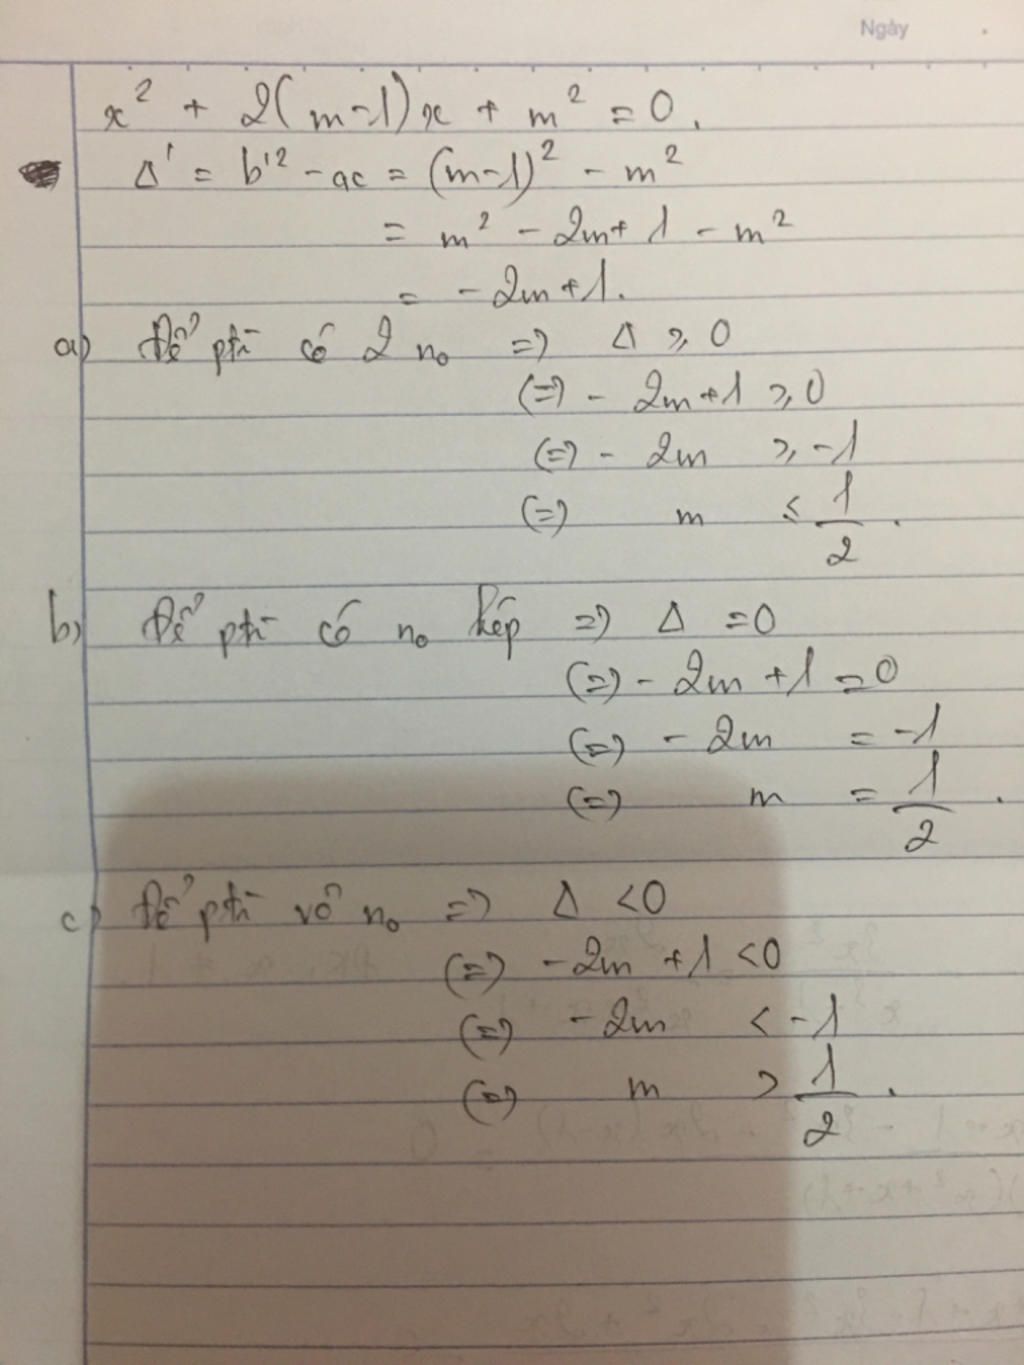 Ngày
x² + 2(m-1)x + m² = 0.
Δ' = b'² - ac = (m-1)² - m²
= m² - 2m + 1 - m²
= - 2m + 1.
a) Để pt có 2 n₀ => Δ ≥ 0
(=) - 2m + 1 ≥ 0
(=) - 2m ≥ -1
(=) m ≤ 1/2.
b) Để pt có n₀ kép => Δ = 0
(=) - 2m + 1 = 0
(=) - 2m = -1
(=) m = 1/2.
c) Để pt vô n₀ => Δ < 0
(=) - 2m + 1 < 0
(=) - 2m < -1
(=) m > 1/2.